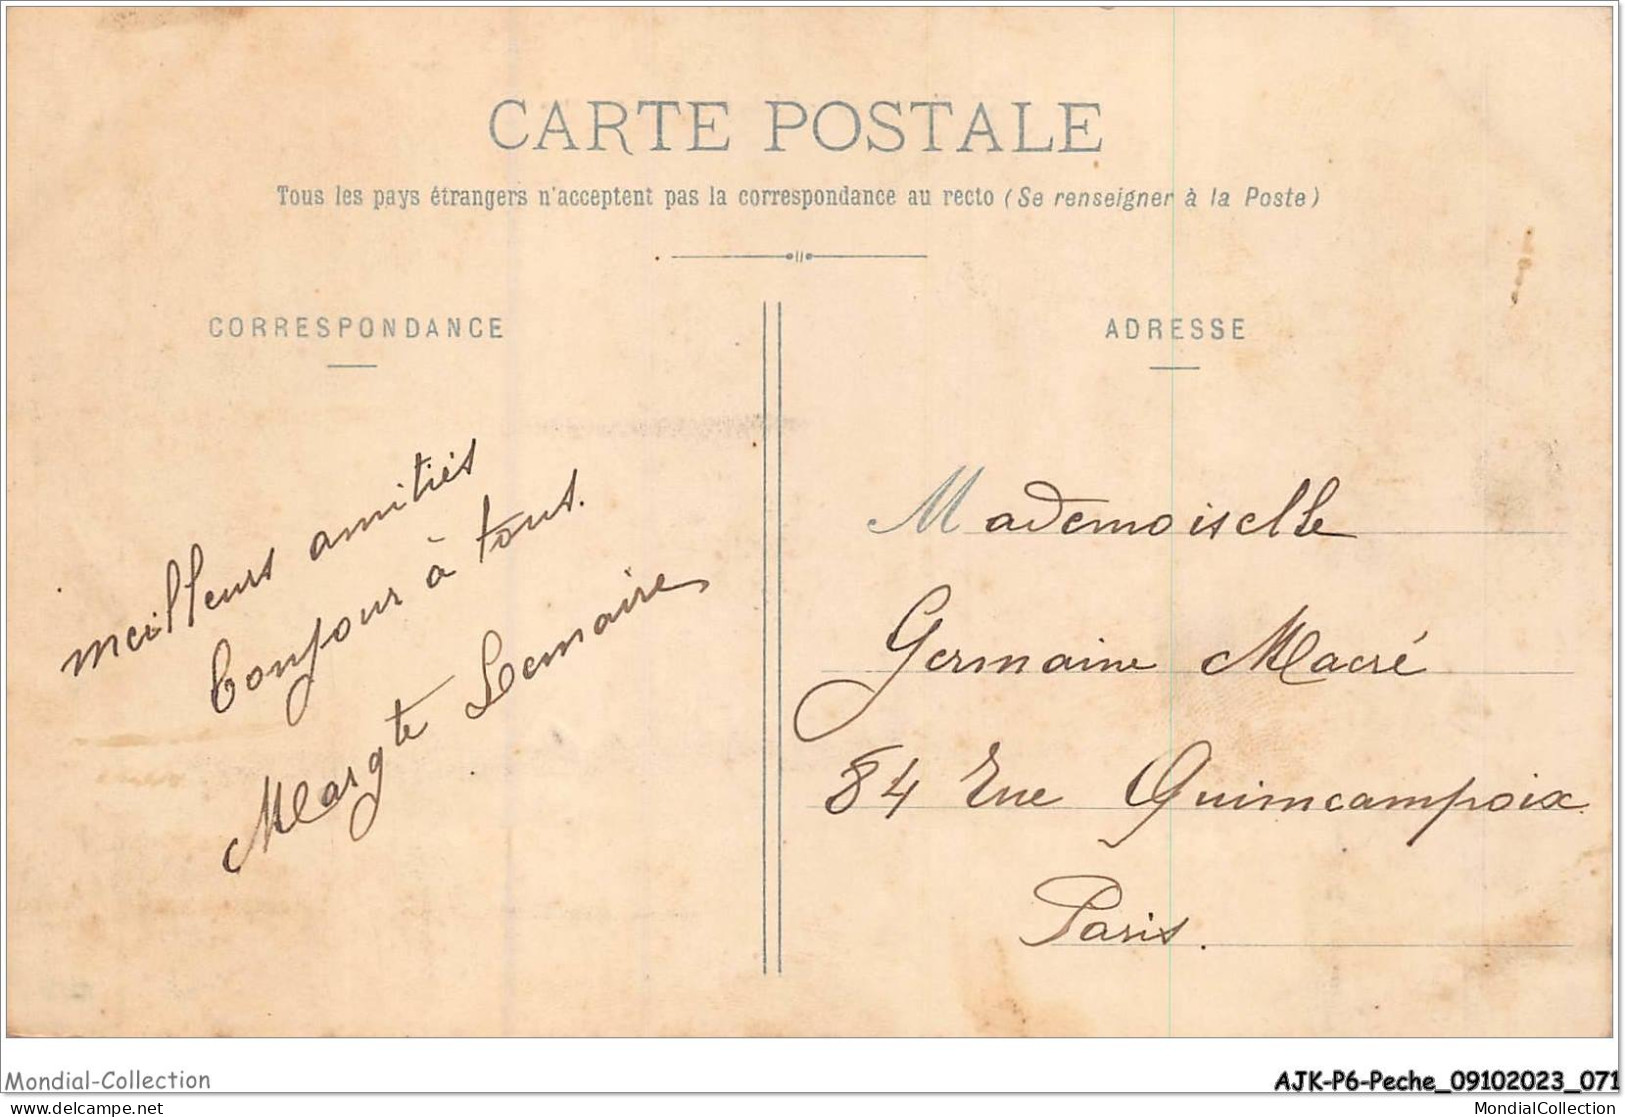 CARTE POSTALE
Tous les pays étrangers n'acceptent pas la correspondance au recto (Se renseigner à la Poste)
CORRESPONDANCE
meilleurs amitiés
bonjour à tous.
Margte Lemaire
ADRESSE
Mademoiselle
Germaine Macré
84 Rue Quimcampoix
Paris.
Mondial-Collection
AJK-P6-Peche_09102023_071
delcampe.net
MondialCollection